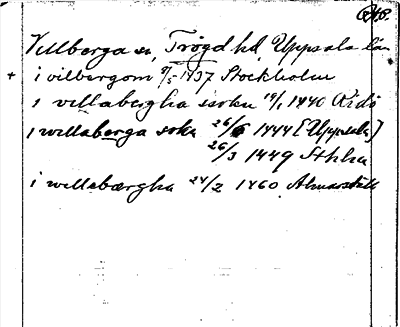 Villberga sn, Trögd hd, Uppsala län
+ i vilbergom 9/5 1437 Stockholm
i villabergha sokn 19/1 1440 Ridö
i willaberga sokn 26/6 1444 [Uppsala]
26/3 1449 Sthlm
i willabærgha 24/2 1460 Almarstäk